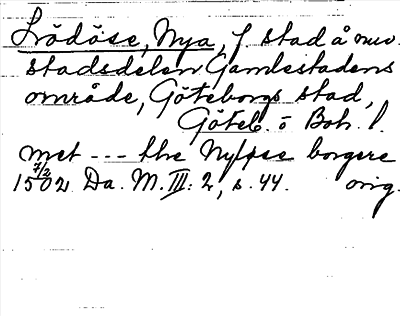 Lödöse, Nya, f. stad å nuv.
stadsdelen Gamlestadens
område, Göteborgs stad,
Göteb. o Boh. l.
met --- the Nyløse borgere
7/2
1502 Da. M. III: 2, s. 44. orig.